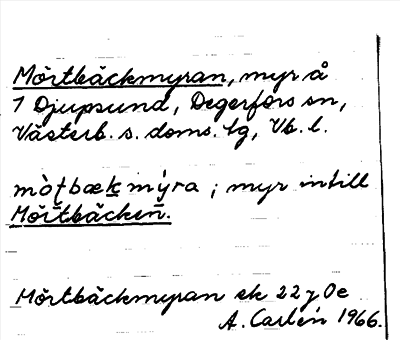 Mörtbäckmyran, myr å
1 Djupsund, Degerfors sn,
Västerb. s. doms. lg, Vb. l.
mòt̩bæk mýra ; myr intill
Mörtbäcken.
Mörtbäckmyran ek 22 7 Oe
A. Carlén 1966.